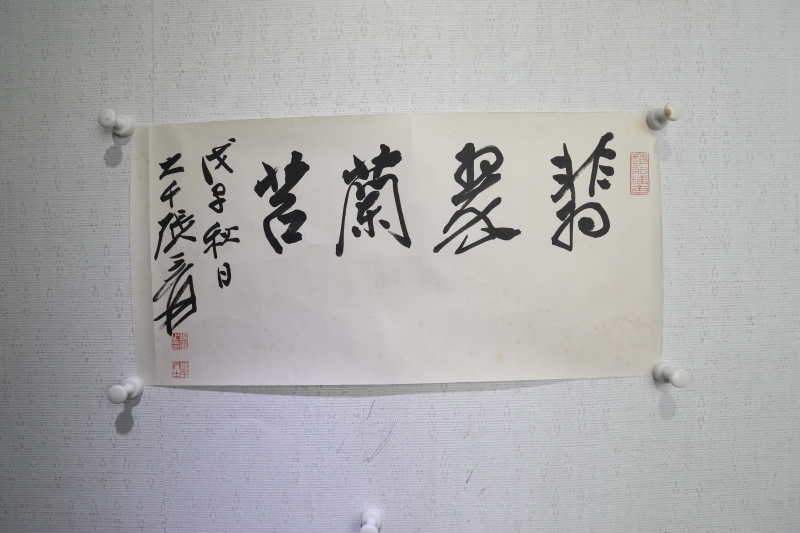 翡翠蘭苕
戊子秋日
大千張爰